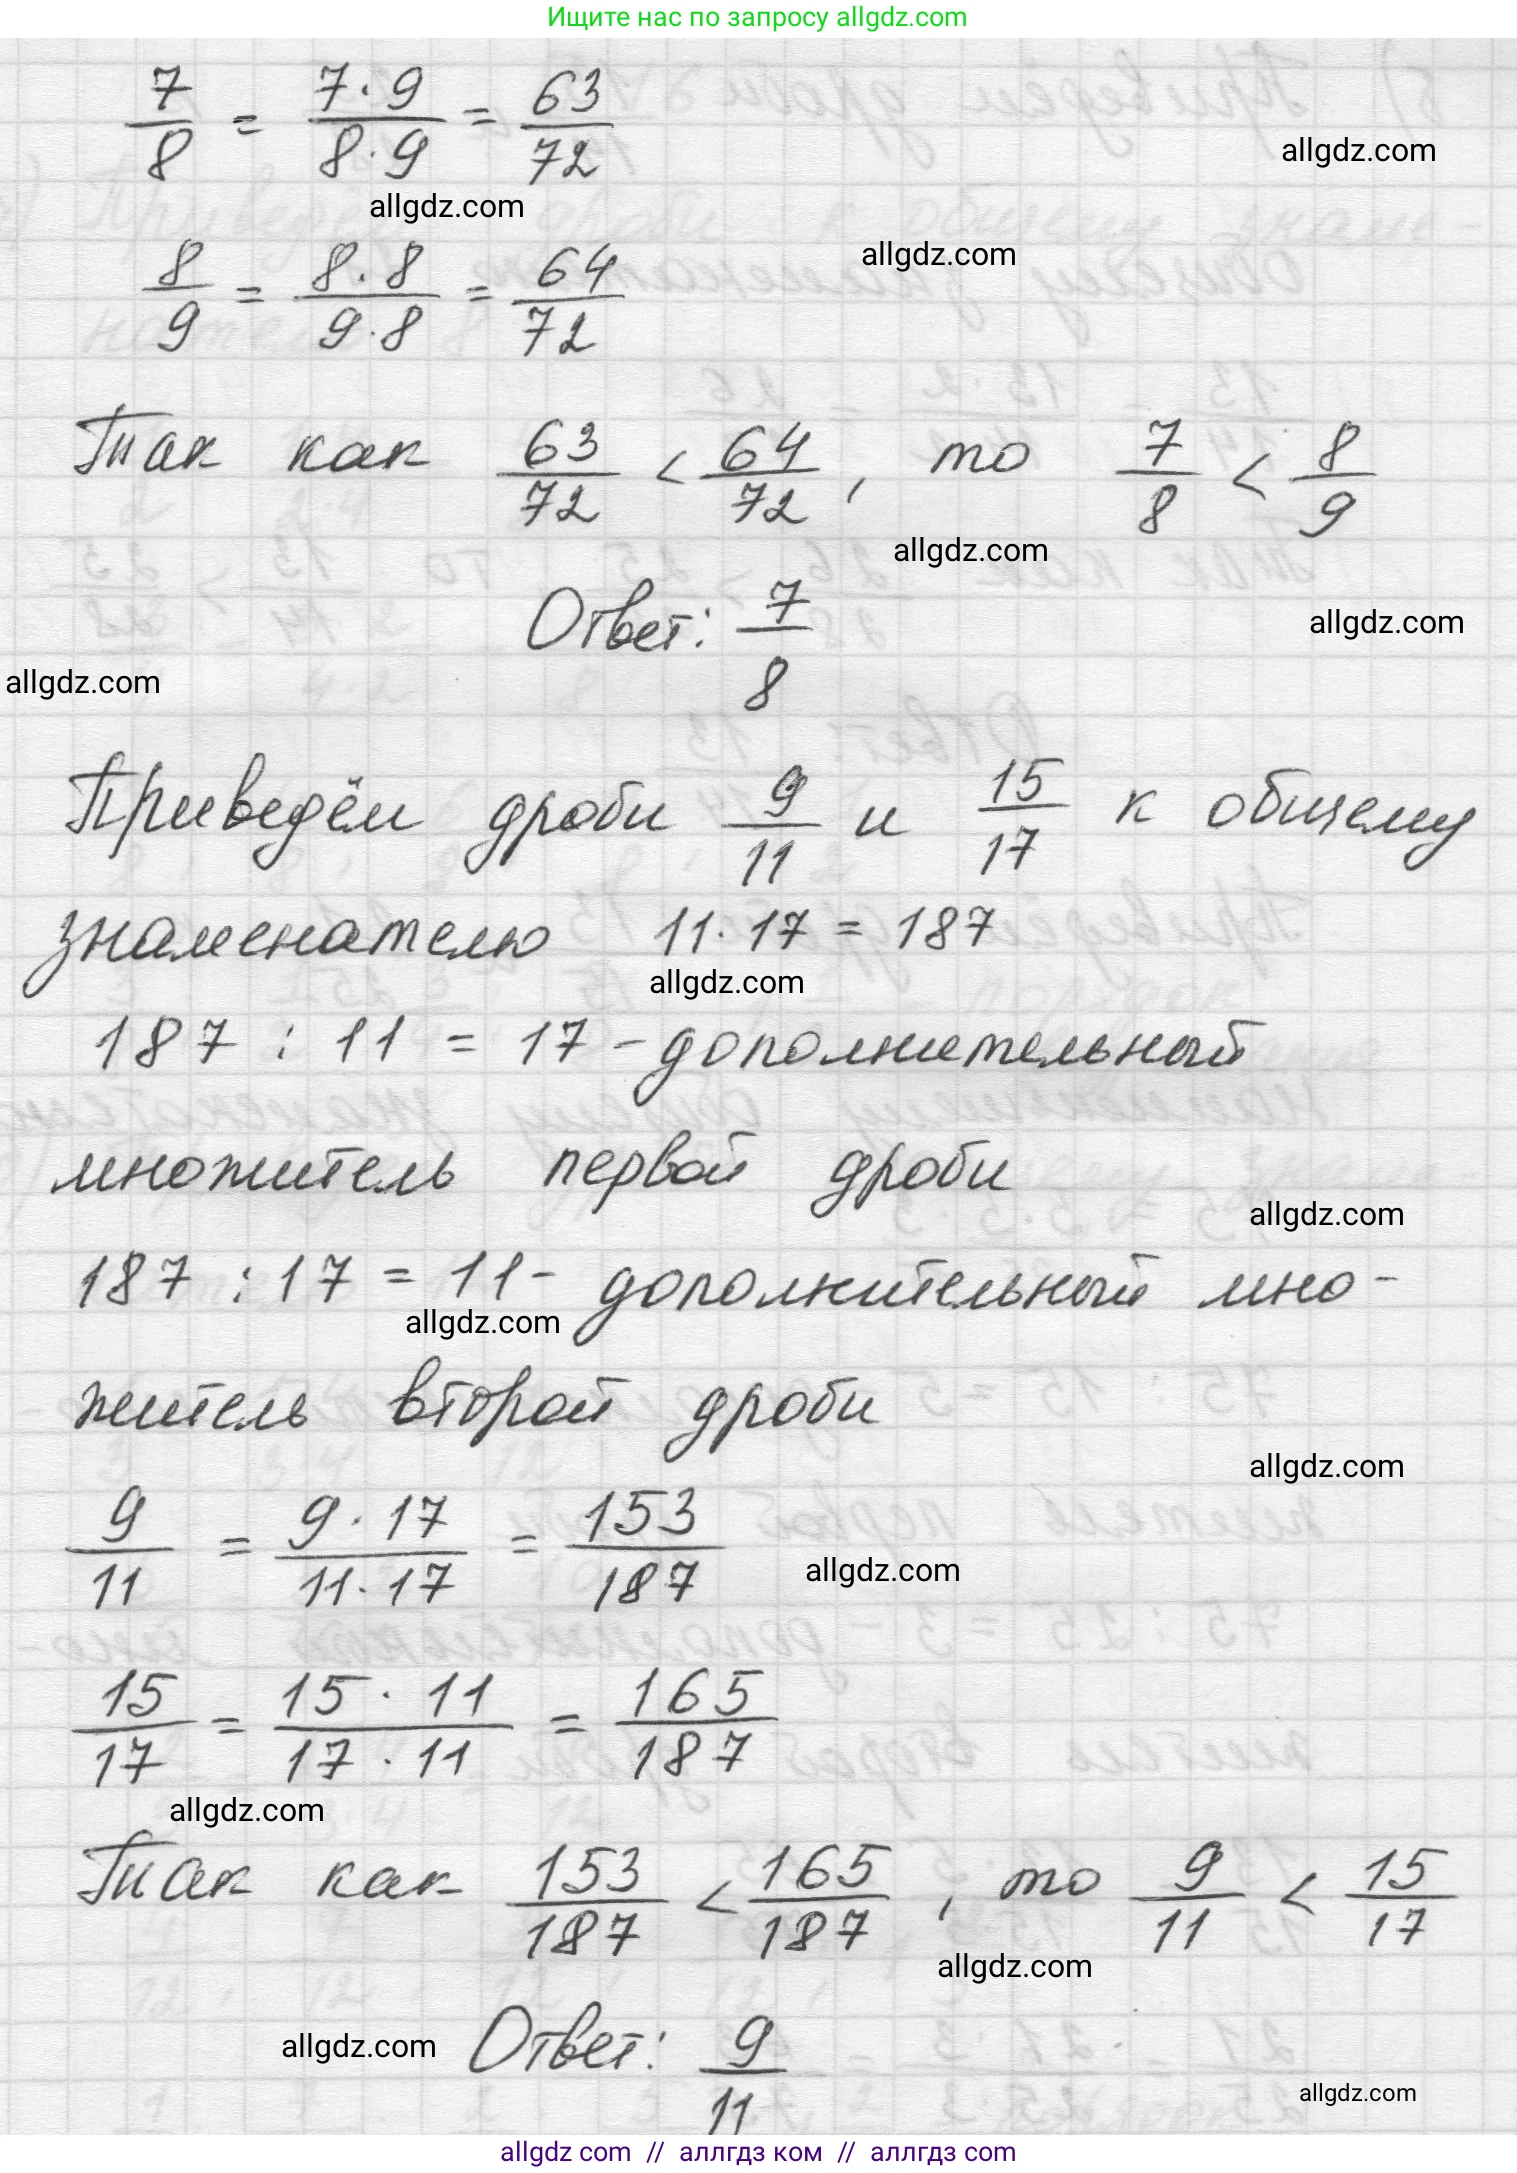 Ищите нас по запросу allgdz.com
7/8 = 7·9/8·9 = 63/72
allgdz.com
allgdz.com
8/9 = 8·8/9·8 = 64/72
allgdz.com
Так как 63/72 < 64/72, то 7/8 < 8/9
allgdz.com
Ответ: 7/8
allgdz.com
allgdz.com
Приведём дроби 9/11 и 15/17 к общему
знаменателю 11·17 = 187
allgdz.com
187 : 11 = 17 - дополнительный
множитель первой дроби
allgdz.com
187 : 17 = 11 - дополнительный мно-
allgdz.com
житель второй дроби
allgdz.com
9/11 = 9·17/11·17 = 153/187
allgdz.com
15/17 = 15·11/17·11 = 165/187
allgdz.com
Так как 153/187 < 165/187, то 9/11 < 15/17
allgdz.com
Ответ: 9/11
allgdz.com
allgdz.com
allgdz com // аллгдз ком // аллгдз com